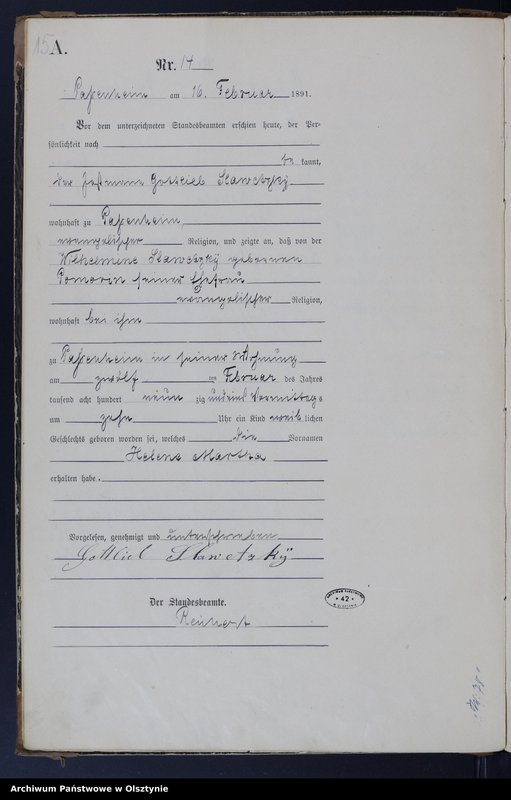 15 A.
Nr. 14
Papenheim am 16. Februar 1891.
Vor dem unterzeichneten Standesbeamten erschien heute, der Per-
sönlichkeit nach
be kannt,
der Gottlieb Slawetzky
wohnhaft zu Papenheim
evangelischer Religion, und zeigte an, daß von der
Wilhelmine Slawetzky geborenen
Pomoren seiner Ehefrau
evangelischer Religion,
wohnhaft bei ihm
zu Papenheim in seiner Wohnung
am zwölf ten Februar des Jahres
tausend acht hundert neun zig und eins Vormittags
um zehn Uhr ein Kind weib lichen
Geschlechts geboren worden sei, welches die Vornamen
Helene Martha
erhalten habe.
Vorgelesen, genehmigt und unterschrieben
Gottlieb Slawetzky
Der Standesbeamte.
42
Archiwum Państwowe w Olsztynie